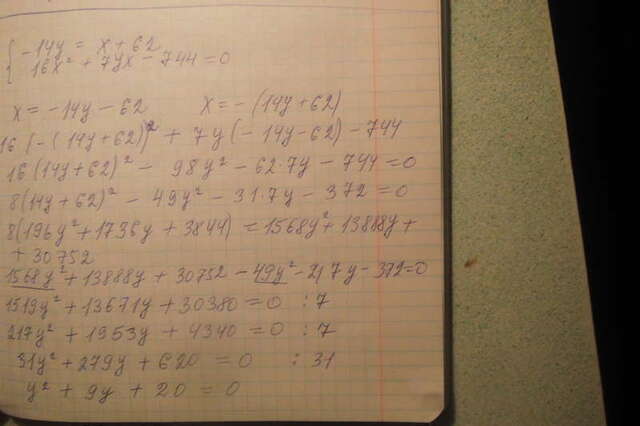 { -14y = x + 62
16x² + 7yx - 744 = 0
x = -14y - 62 x = -(14y + 62)
16(-(14y + 62))² + 7y(-14y - 62) - 744
16(14y + 62)² - 98y² - 62·7y - 744 = 0
8(14y + 62)² - 49y² - 31·7y - 372 = 0
8(196y² + 1736y + 3844) = 1568y² + 13888y +
+ 30752
1568y² + 13888y + 30752 - 49y² - 217y - 372 = 0
1519y² + 13671y + 30380 = 0 :7
217y² + 1953y + 4340 = 0 :7
31y² + 279y + 620 = 0 :31
y² + 9y + 20 = 0